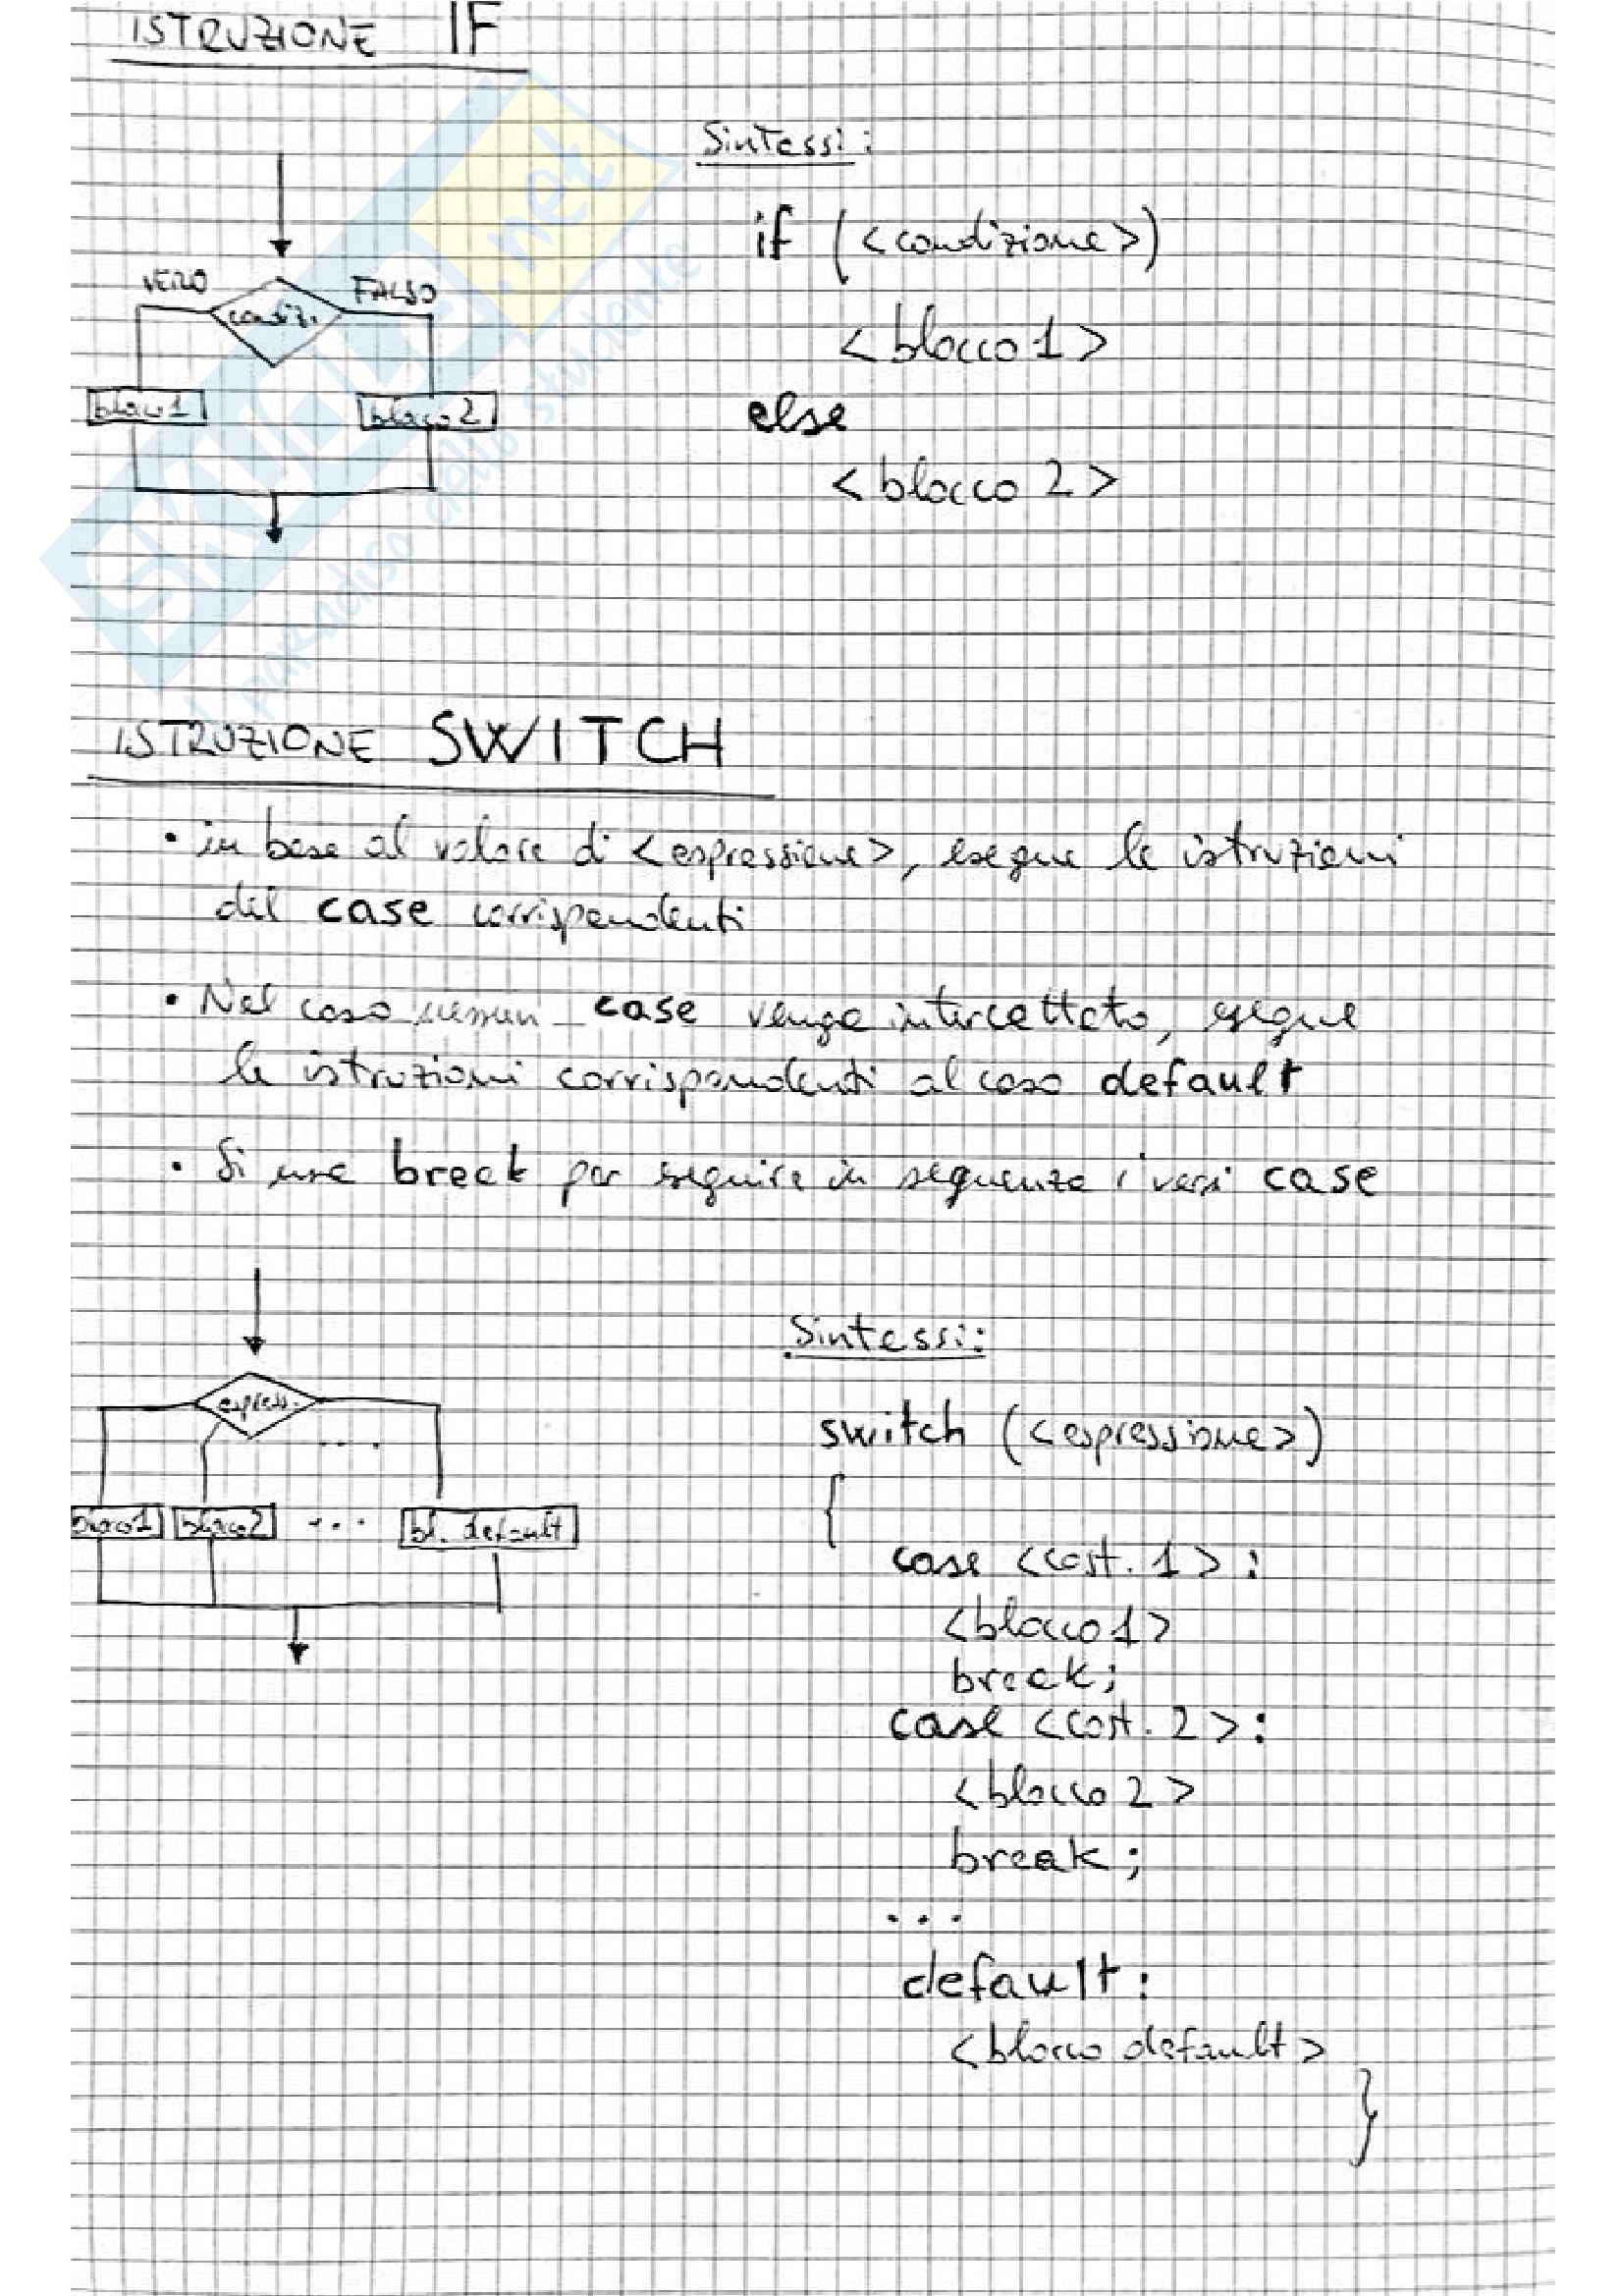 ISTRUZIONE IF
Sintassi:
if (<condizione>)
VERO
FALSO
condiz.
<blocco 1>
blocco1
blocco2
else
<blocco 2>
SKUOLA.net
il paradiso dello studente
ISTRUZIONE SWITCH
• in base al valore di <espressione>, esegue le istruzioni
del case corrispondenti
• Nel caso nessun case venga intercettato, esegue
le istruzioni corrispondenti al caso default
• Si usa break per eseguire in sequenza i vari case
Sintassi:
express.
....
switch (<espressione>)
{
blocco1
blocco2
...
bl. default
case <cost. 1>:
<blocco1>
break;
case <cost. 2>:
<blocco 2>
break;
...
default:
<blocco default>
}